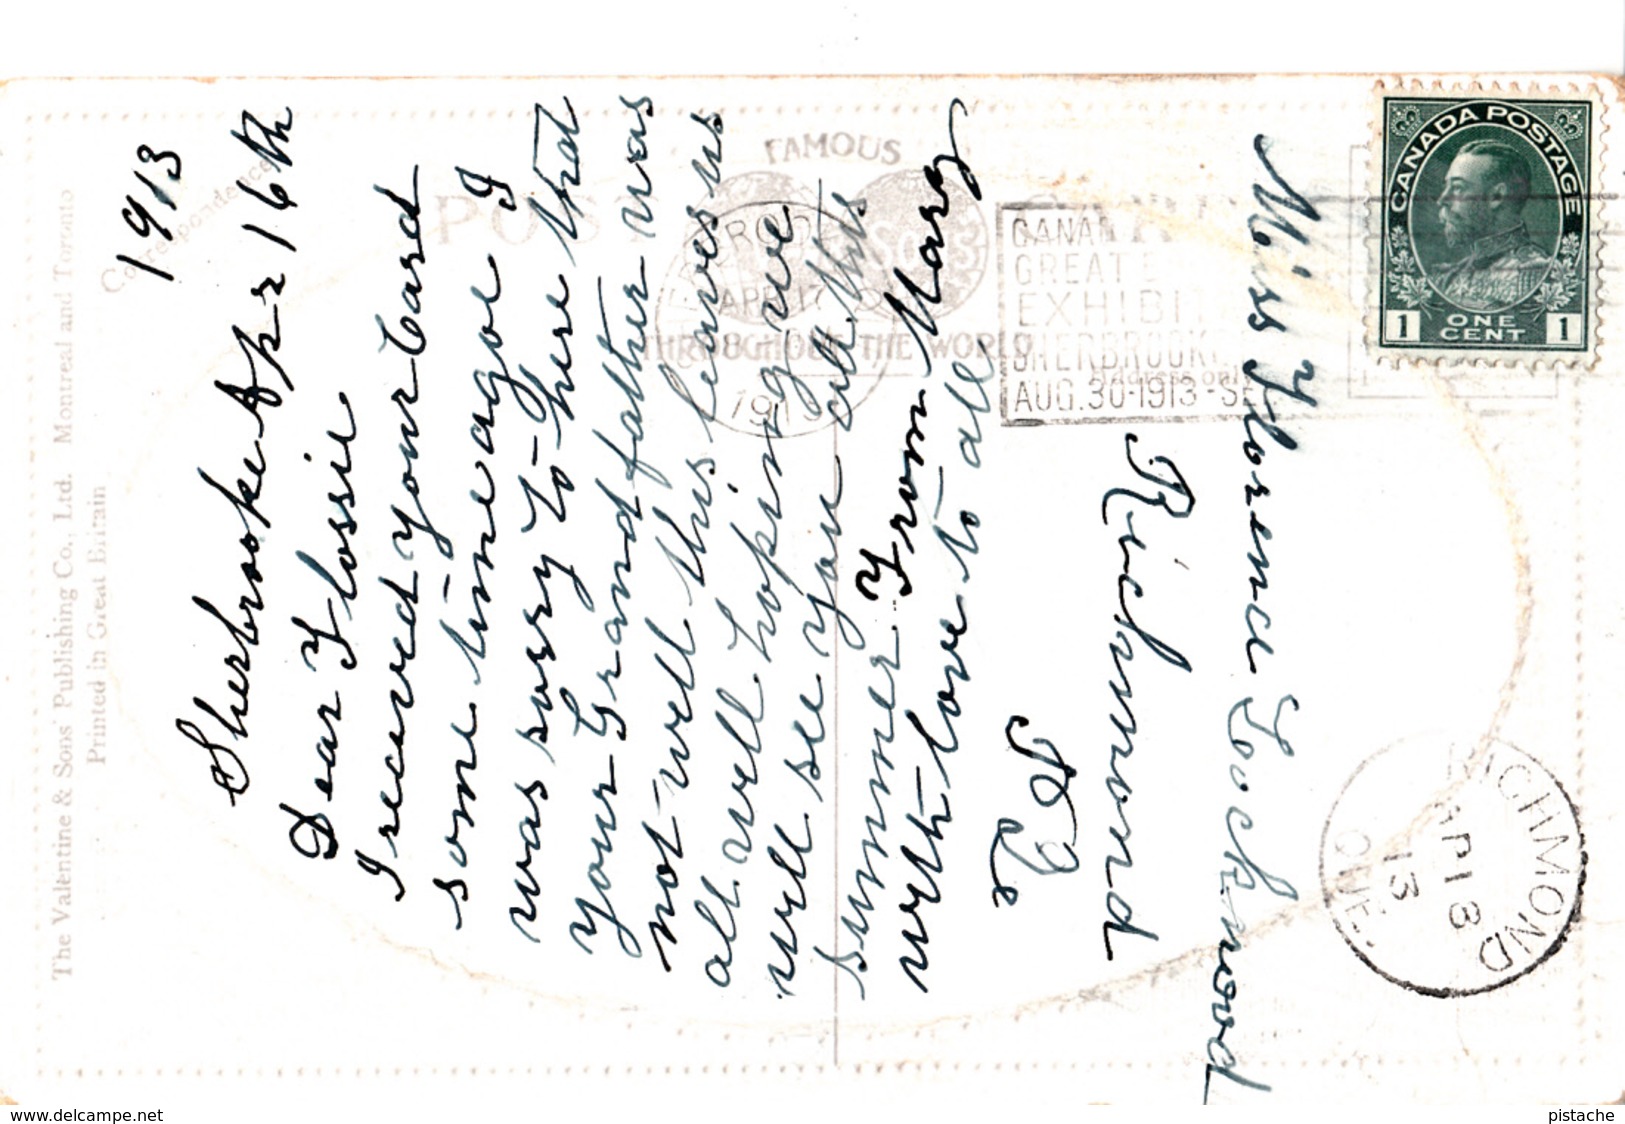 Sherbrooke Apr 16th
1913
Dear Flossie
I recieved your Card
some time agoe I
was sorry to here that
your Grand father was
not well this leaves us
all well hoping we
will see you all this
summer From Mary
with love to all
Miss Florence Lockwood
Richmond
P Que
CANADA POSTAGE
1 ONE CENT 1
RICHMOND
AP 18
13
QUE.
FAMOUS
THROUGHOUT THE WORLD
POST
Correspondence
Address only
APR 17
8-
1913
CANADA
GREAT E
EXHIBI
SHERBROOKE
AUG. 30-1913-SE
The Valentine & Sons' Publishing Co., Ltd. Montreal and Toronto
Printed in Great Britain
www.delcampe.net
pistache